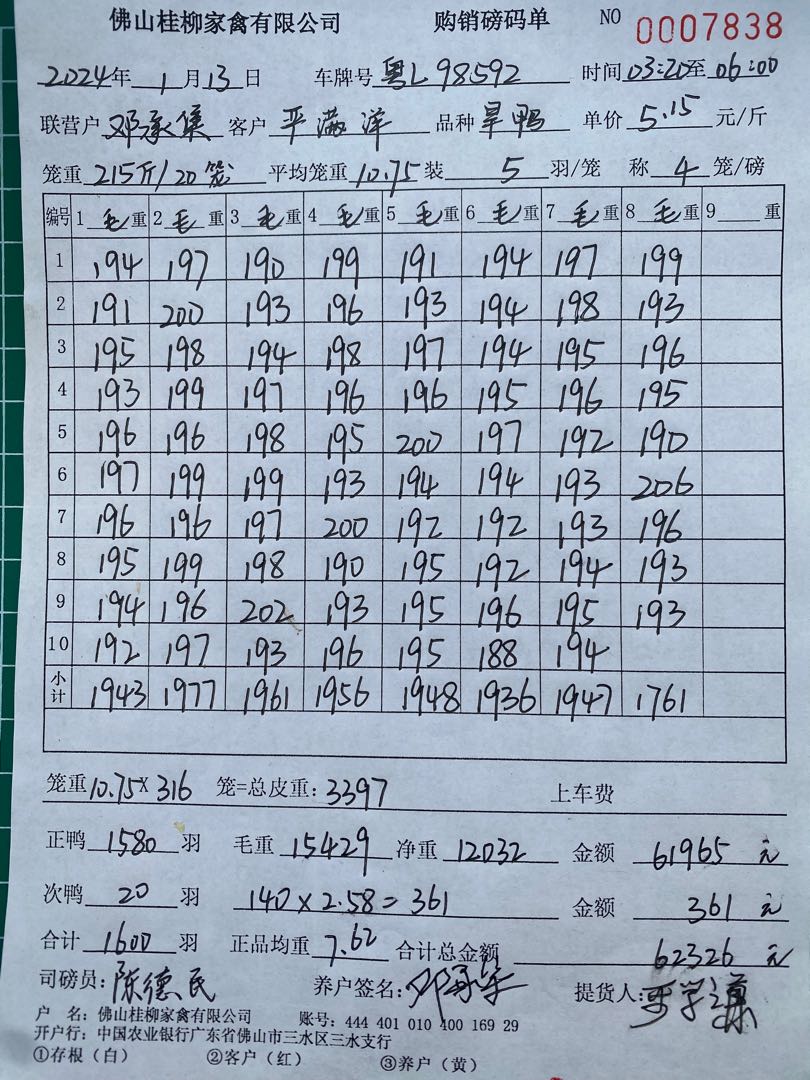 佛山桂柳家禽有限公司 购销磅码单 NO 0007838
2024年 1月13日 车牌号 粤L98592 时间 03:20至06:00
联营户 邓承集 客户 平满洋 品种 旱鸭 单价 5.15 元/斤
笼重 215斤/20笼 平均笼重 10.75 装 5 羽/笼 称 4 笼/磅
编号 1 毛 重 2 毛 重 3 毛 重 4 毛 重 5 毛 重 6 毛 重 7 毛 重 8 毛 重 9 重
1 194 197 190 199 191 194 197 199
2 191 200 193 196 193 194 198 193
3 195 198 194 198 197 194 195 196
4 193 199 197 196 196 195 196 195
5 196 196 198 195 200 197 192 190
6 197 199 199 193 194 194 193 206
7 196 196 197 200 192 192 193 196
8 195 199 198 190 195 192 194 193
9 194 196 202 193 195 196 195 193
10 192 197 193 196 195 188 194
小计 1943 1977 1961 1956 1948 1936 1947 1761
笼重 10.75×316 笼=总皮重: 3397 上车费
正鸭 1580 羽 毛重 15429 净重 12032 金额 61965 元
次鸭 20 羽 140×2.58=361 金额 361 元
合计 1600 羽 正品均重 7.62 合计总金额 62326 元
司磅员: 陈德民 养户签名: 提货人:
户 名: 佛山桂柳家禽有限公司 账号: 444 401 010 400 169 29
开户行: 中国农业银行广东省佛山市三水区三水支行
①存根（白） ②客户（红） ③养户（黄）